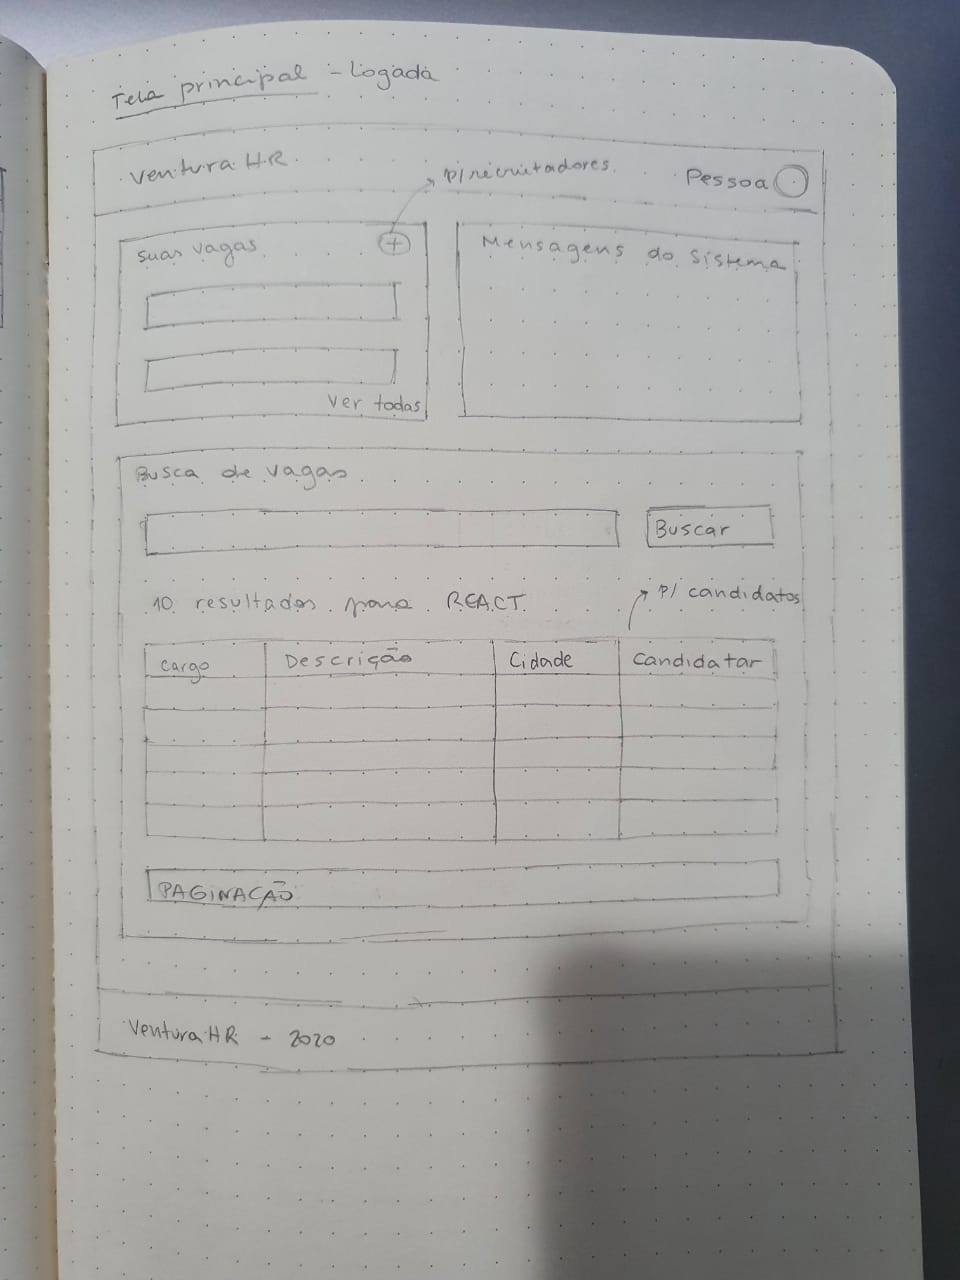 Tela principal - Logada
Ventura HR
p/ recrutadores
Pessoa
Suas vagas
+
Mensagens do Sistema
Ver todas
Busca de vagas
Buscar
10 resultados para REACT
p/ candidatos
Cargo
Descrição
Cidade
Candidatar
PAGINAÇÃO
Ventura HR - 2020